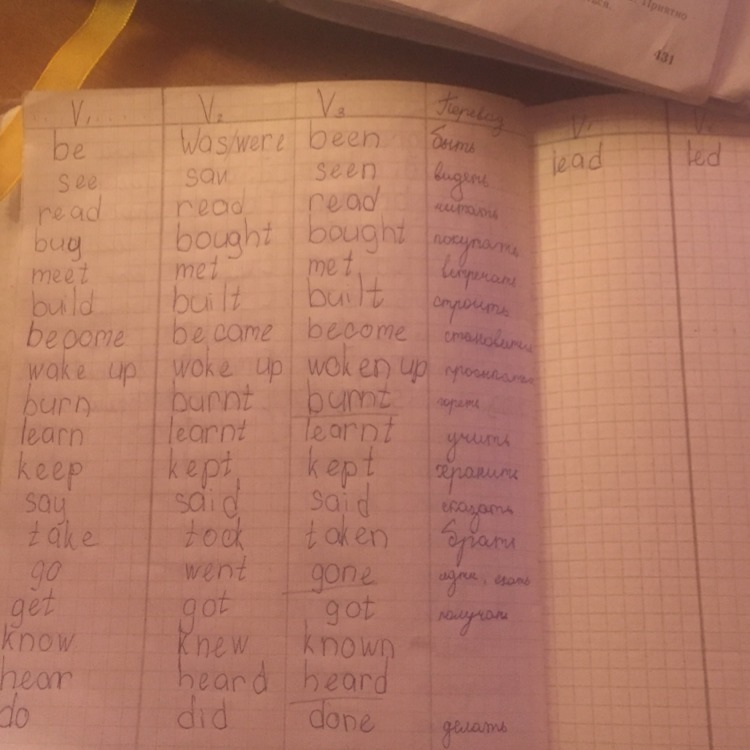 Приятно
431
V₁ V₂ V₃ Перевод V₁
be was/were been быть lead led
see saw seen видеть
read read read читать
buy bought bought покупать
meet met met встречать
build built built строить
become became become становиться
wake up woke up woken up просыпаться
burn burnt burnt гореть
learn learnt learnt учить
keep kept kept хранить
say said said сказать
take took taken брать
go went gone идти, ехать
get got got получать
know knew known
hear heard heard
do did done делать